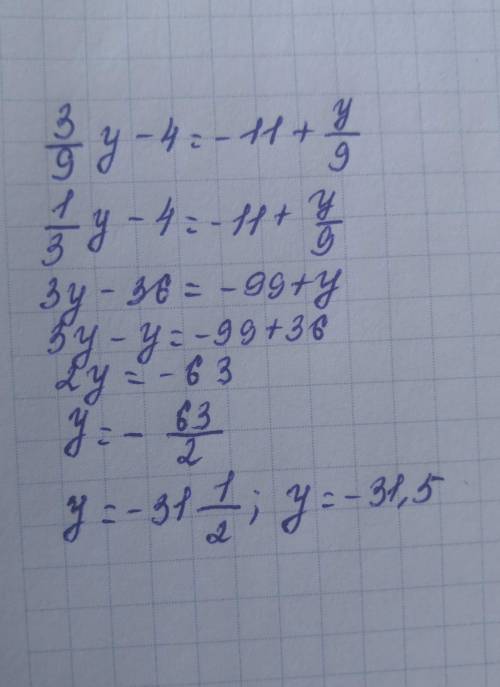 3/9 y - 4 = - 11 + y/9
1/3 y - 4 = - 11 + y/9
3y - 36 = - 99 + y
3y - y = - 99 + 36
2y = - 63
y = - 63/2
y = - 31 1/2 ; y = - 31,5